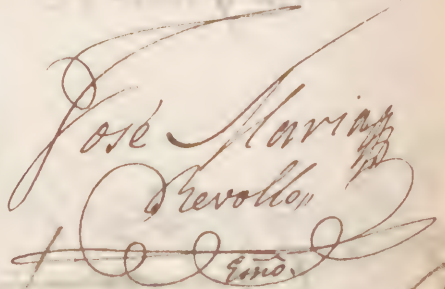 José Maria
Revollo